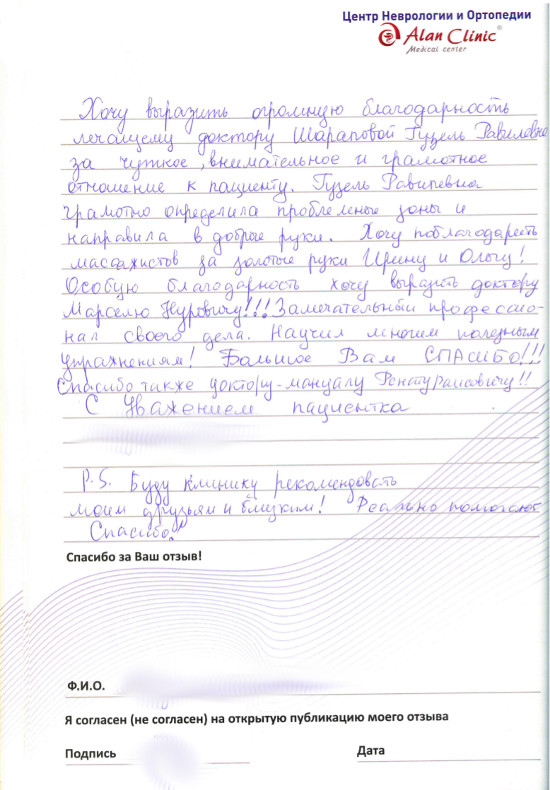 Центр Неврологии и Ортопедии
Alan Clinic
Medical center
Хочу выразить огромную благодарность
лечащему доктору Шараповой Гузель Равиловне
за чуткое, внимательное и грамотное
отношение к пациенту. Гузель Равилевна
грамотно определила проблемные зоны и
направила в добрые руки. Хочу поблагодарить
массажистов за золотые руки Ирину и Ольгу!
Особую благодарность хочу выразить доктору
Марселю Нуровичу!!! Замечательный профессио-
нал своего дела. Научил многим полезным
упражнениям! Большое Вам СПАСИБО!!!
Спасибо также доктору-мануалу Ренату Раисовичу!!
С Уважением пациентка
P.S. Буду клинику рекомендовать
моим друзьям и близким! Реально помогают
Спасибо!
Спасибо за Ваш отзыв!
Ф.И.О.
Я согласен (не согласен) на открытую публикацию моего отзыва
Подпись Дата